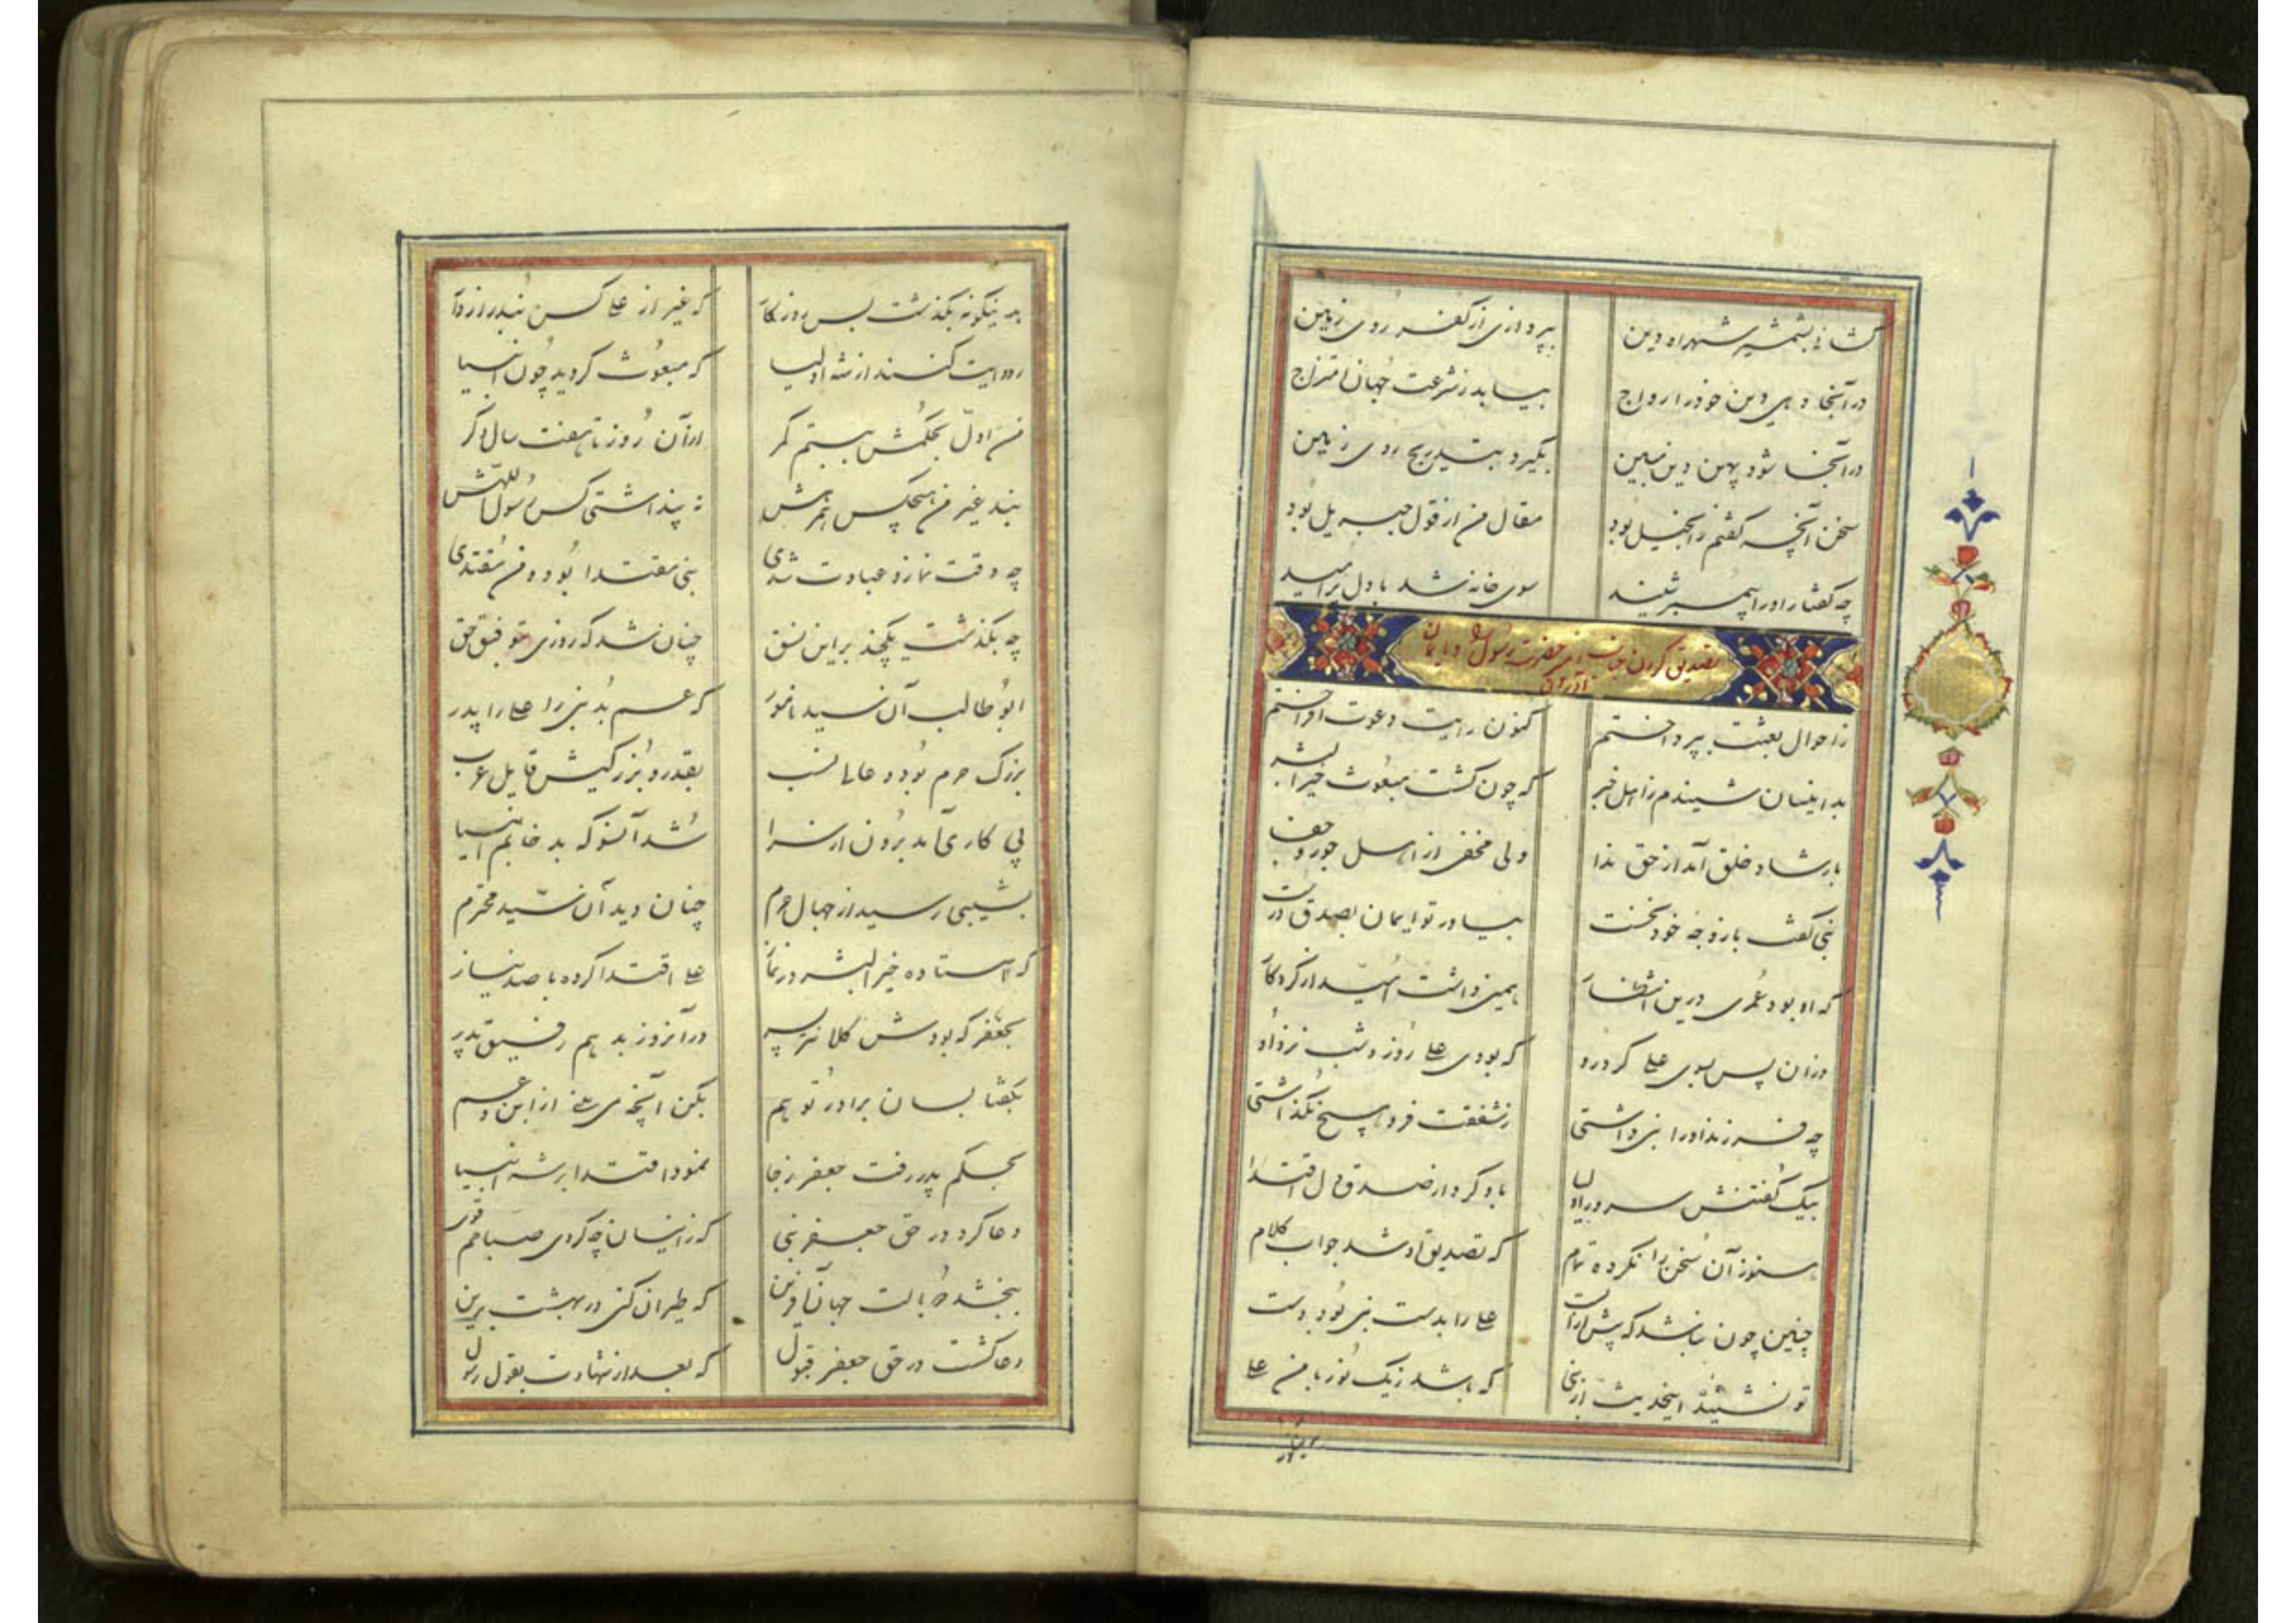 گشائی بشمشیر شهراه دین بپردازی از کفر روی زمین
در آنجا دهی دین خود را رواج بیابد ز شرعت جهان امتزاج
در آنجا شود پهن دین مبین بگیرد بتدریج روی زمین
سخن آنچه گفتم ز انجیل بود مقال من از قول جبریل بود
چه گفتار او را پیمبر شنید سوی خانه شد با دل پر امید
تصدیق کردن حضرت رسول و ایمان آوردن
ز احوال بعثت بپرداختم کنون رایت دعوت افراختم
بدانسان شنیدم ز اهل خبر که چون گشت مبعوث خیر البشر
بارشاد خلق آمد از حق ندا ولی مخفی از اهل جور و جفا
نبی گفت با زوجه خود نخست بیاور تو ایمان بصدق درست
که او بود عمری درین انتظار همین داشت امید از کردگار
وزان پس بسوی علی کرد رو که بودی علی روز و شب نزد او
چه فرزند او را نبی داشتی ز شفقت فرو هیچ نگذاشتی
بیک گفتنش سرور اولیا باو کرد از صدق دل اقتدا
هنوز آن سخن را نکرده تمام که تصدیق او شد جواب کلام
چنین چون نباشد که پیش از الست علی را بدست نبی بود دست
تو نشنیدۀ اینحدیث از نبی که باشد ز یک نور با من علی
بدینگونه بگذشت بس روزگار که غیر از علی کس نبد رازدار
روایت کنند از شه اولیا که مبعوث گردید چون انبیا
من اول بحکمش ببستم کمر از آن روز تا هفت سال دگر
نبد غیر من هیچکس همرهش نه پنداشتی کس رسول اللهش
چه وقت نماز و عبادت شدی نبی مقتدا بود و من مقتدی
چه بگذشت یکچند بر این نسق چنان شد که روزی بتوفیق حق
ابو طالب آن سید نامور که عم بد نبی را علی را پدر
بزرگ حرم بود و عالی نسب بقدر و بزرگیش قایل عرب
پی کاری آمد برون از سرا شد آنسو که بد خاتم انبیا
بشیبی رسید از جبال حرم چنان دید آن سید محترم
که استاده خیر البشر در نماز علی اقتدا کرده با صد نیاز
بجعفر که بودش کلانتر پسر در آنروز بد هم رفیق پدر
بگفتا بسان برادر تو هم بکن آنچه می بینی از ابن عم
بحکم پدر رفت جعفر ز جا نمود اقتدا بر شه انبیا
دعا کرد در حق جعفر نبی که زانسان چه کردی
ببخشد دو بالت جهان آفرین که طیران کنی در بهشت برین
دعا گشت در حق جعفر قبول که بعد از شهادت بقول رسول
بدینگونه